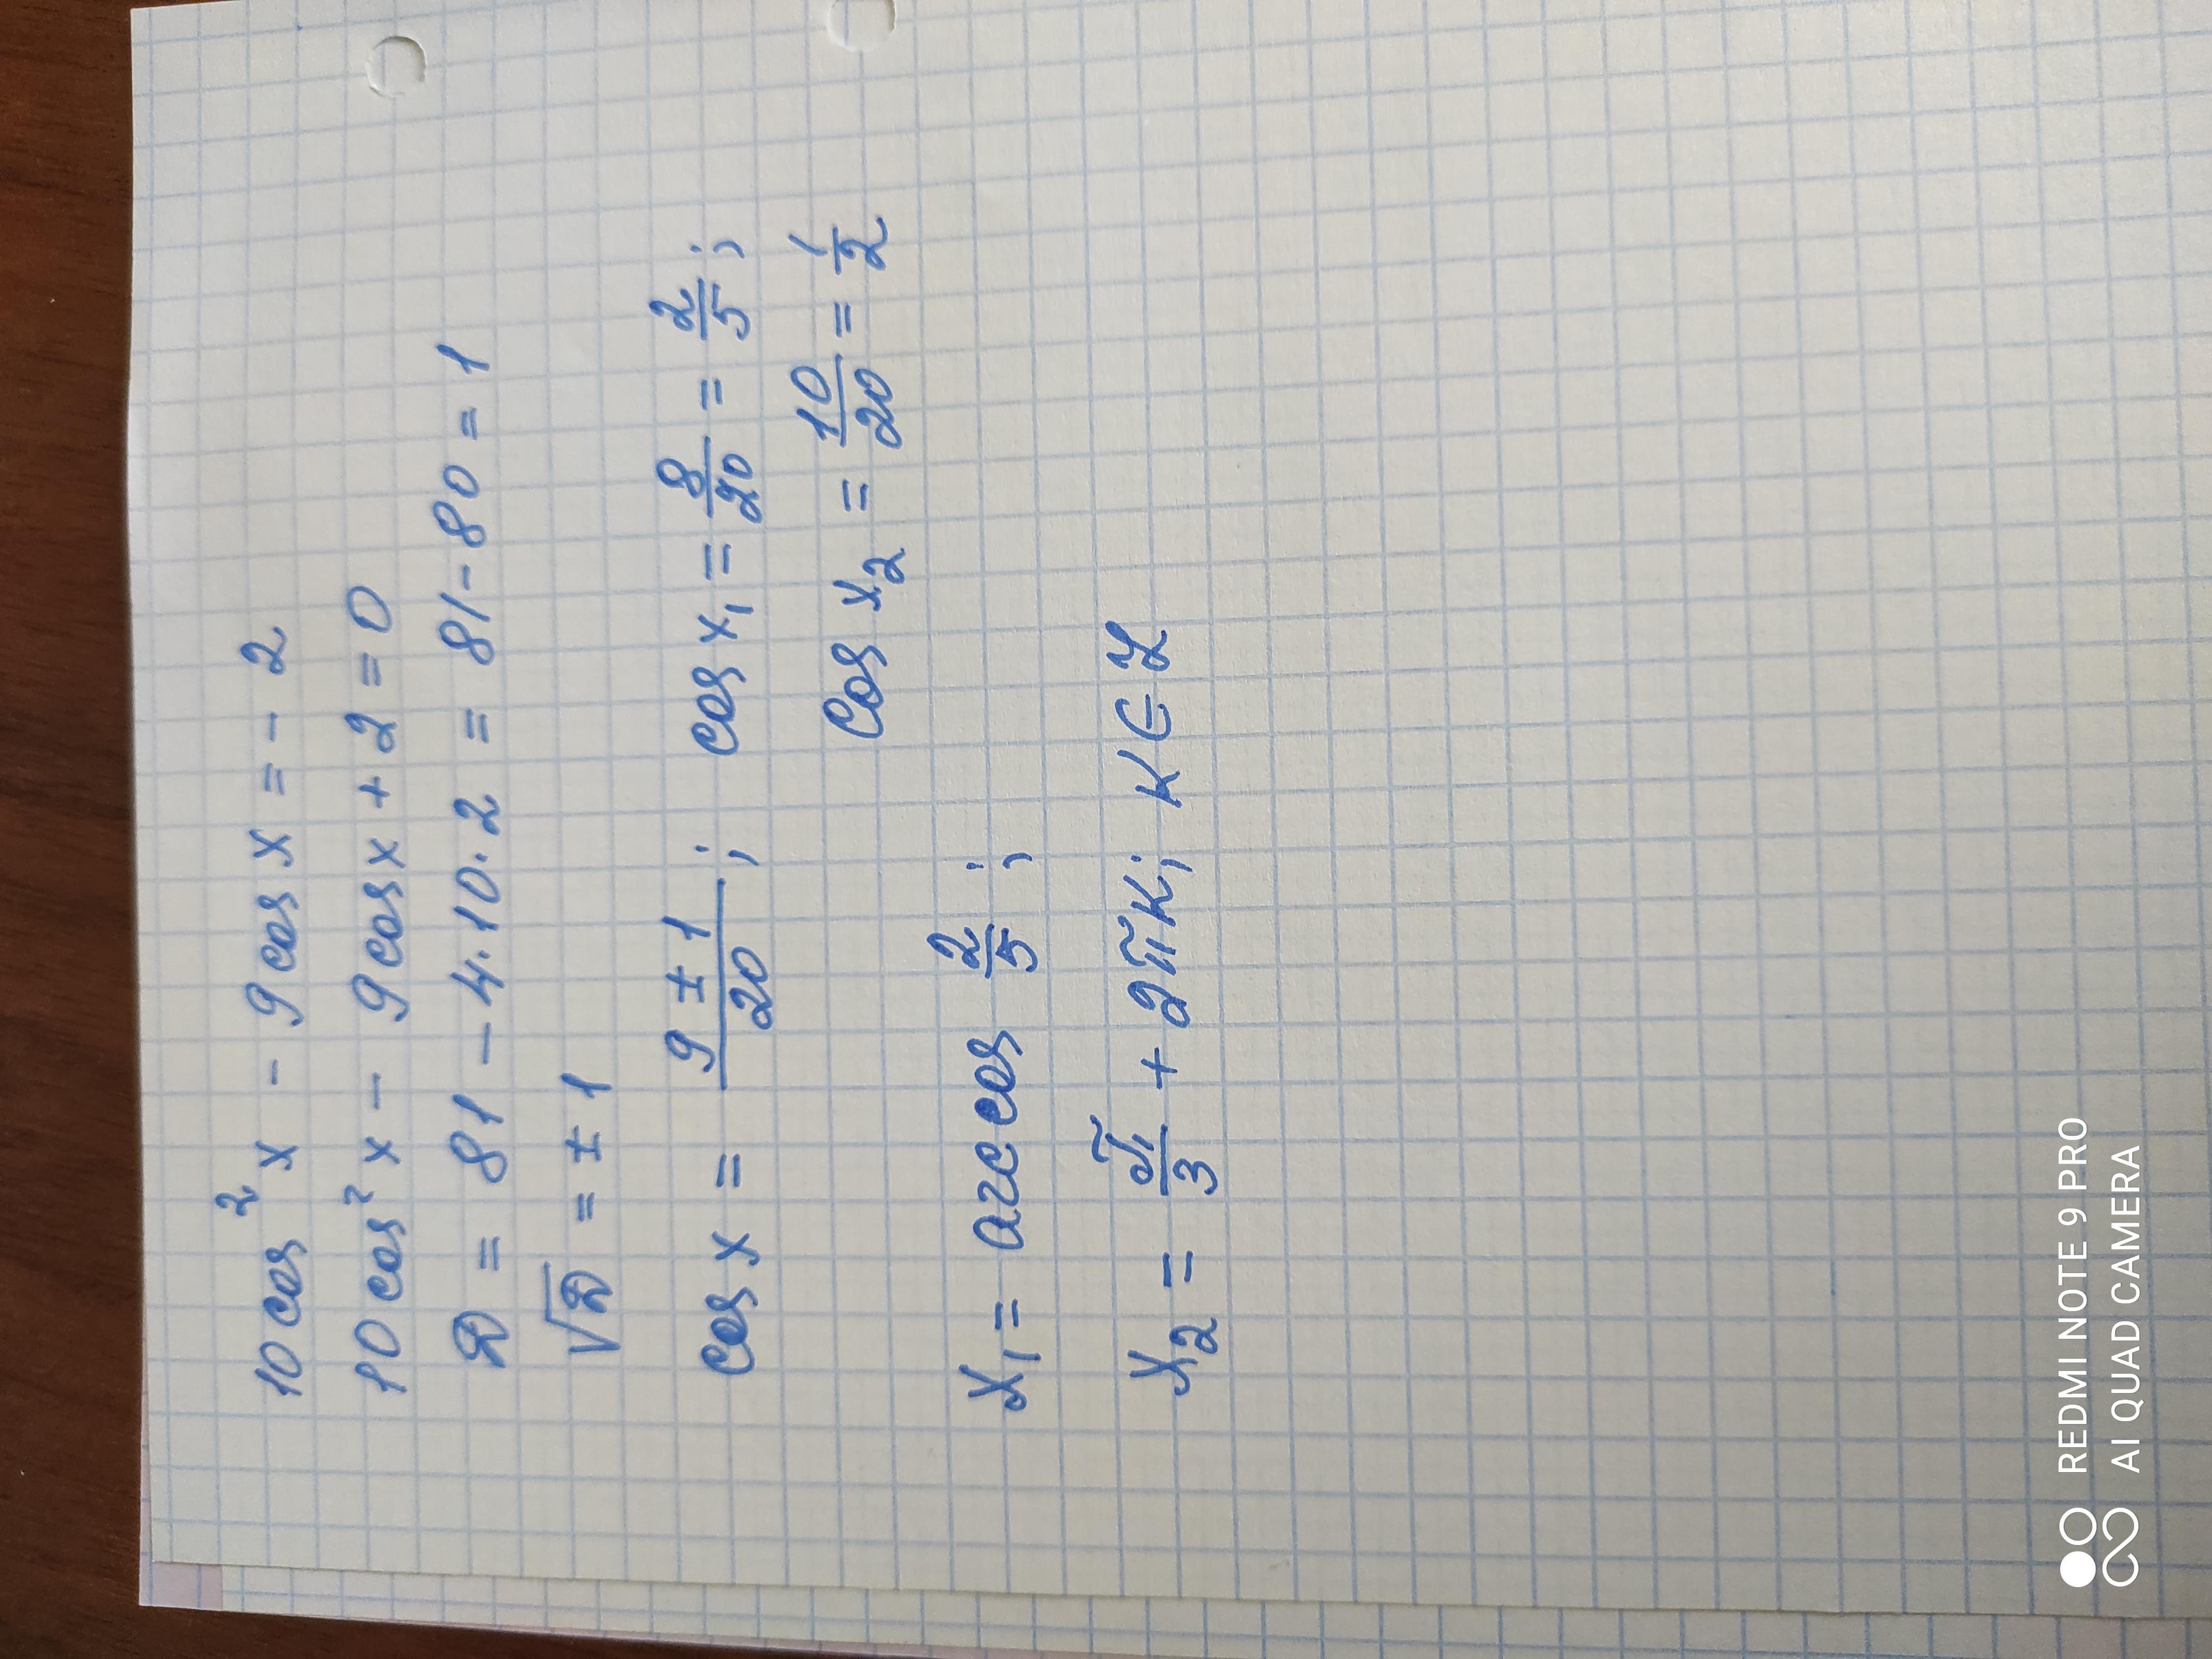 10 cos² x - 9 cos x = - 2
10 cos² x - 9 cos x + 2 = 0
D = 81 - 4 · 10 · 2 = 81 - 80 = 1
√D = ± 1
cos x = (9 ± 1)/20 ; cos x₁ = 8/20 = 2/5 ;
cos x₂ = 10/20 = 1/2
x₁ = arccos 2/5 ;
x₂ = π/3 + 2πк; к ∈ Z
REDMI NOTE 9 PRO
AI QUAD CAMERA